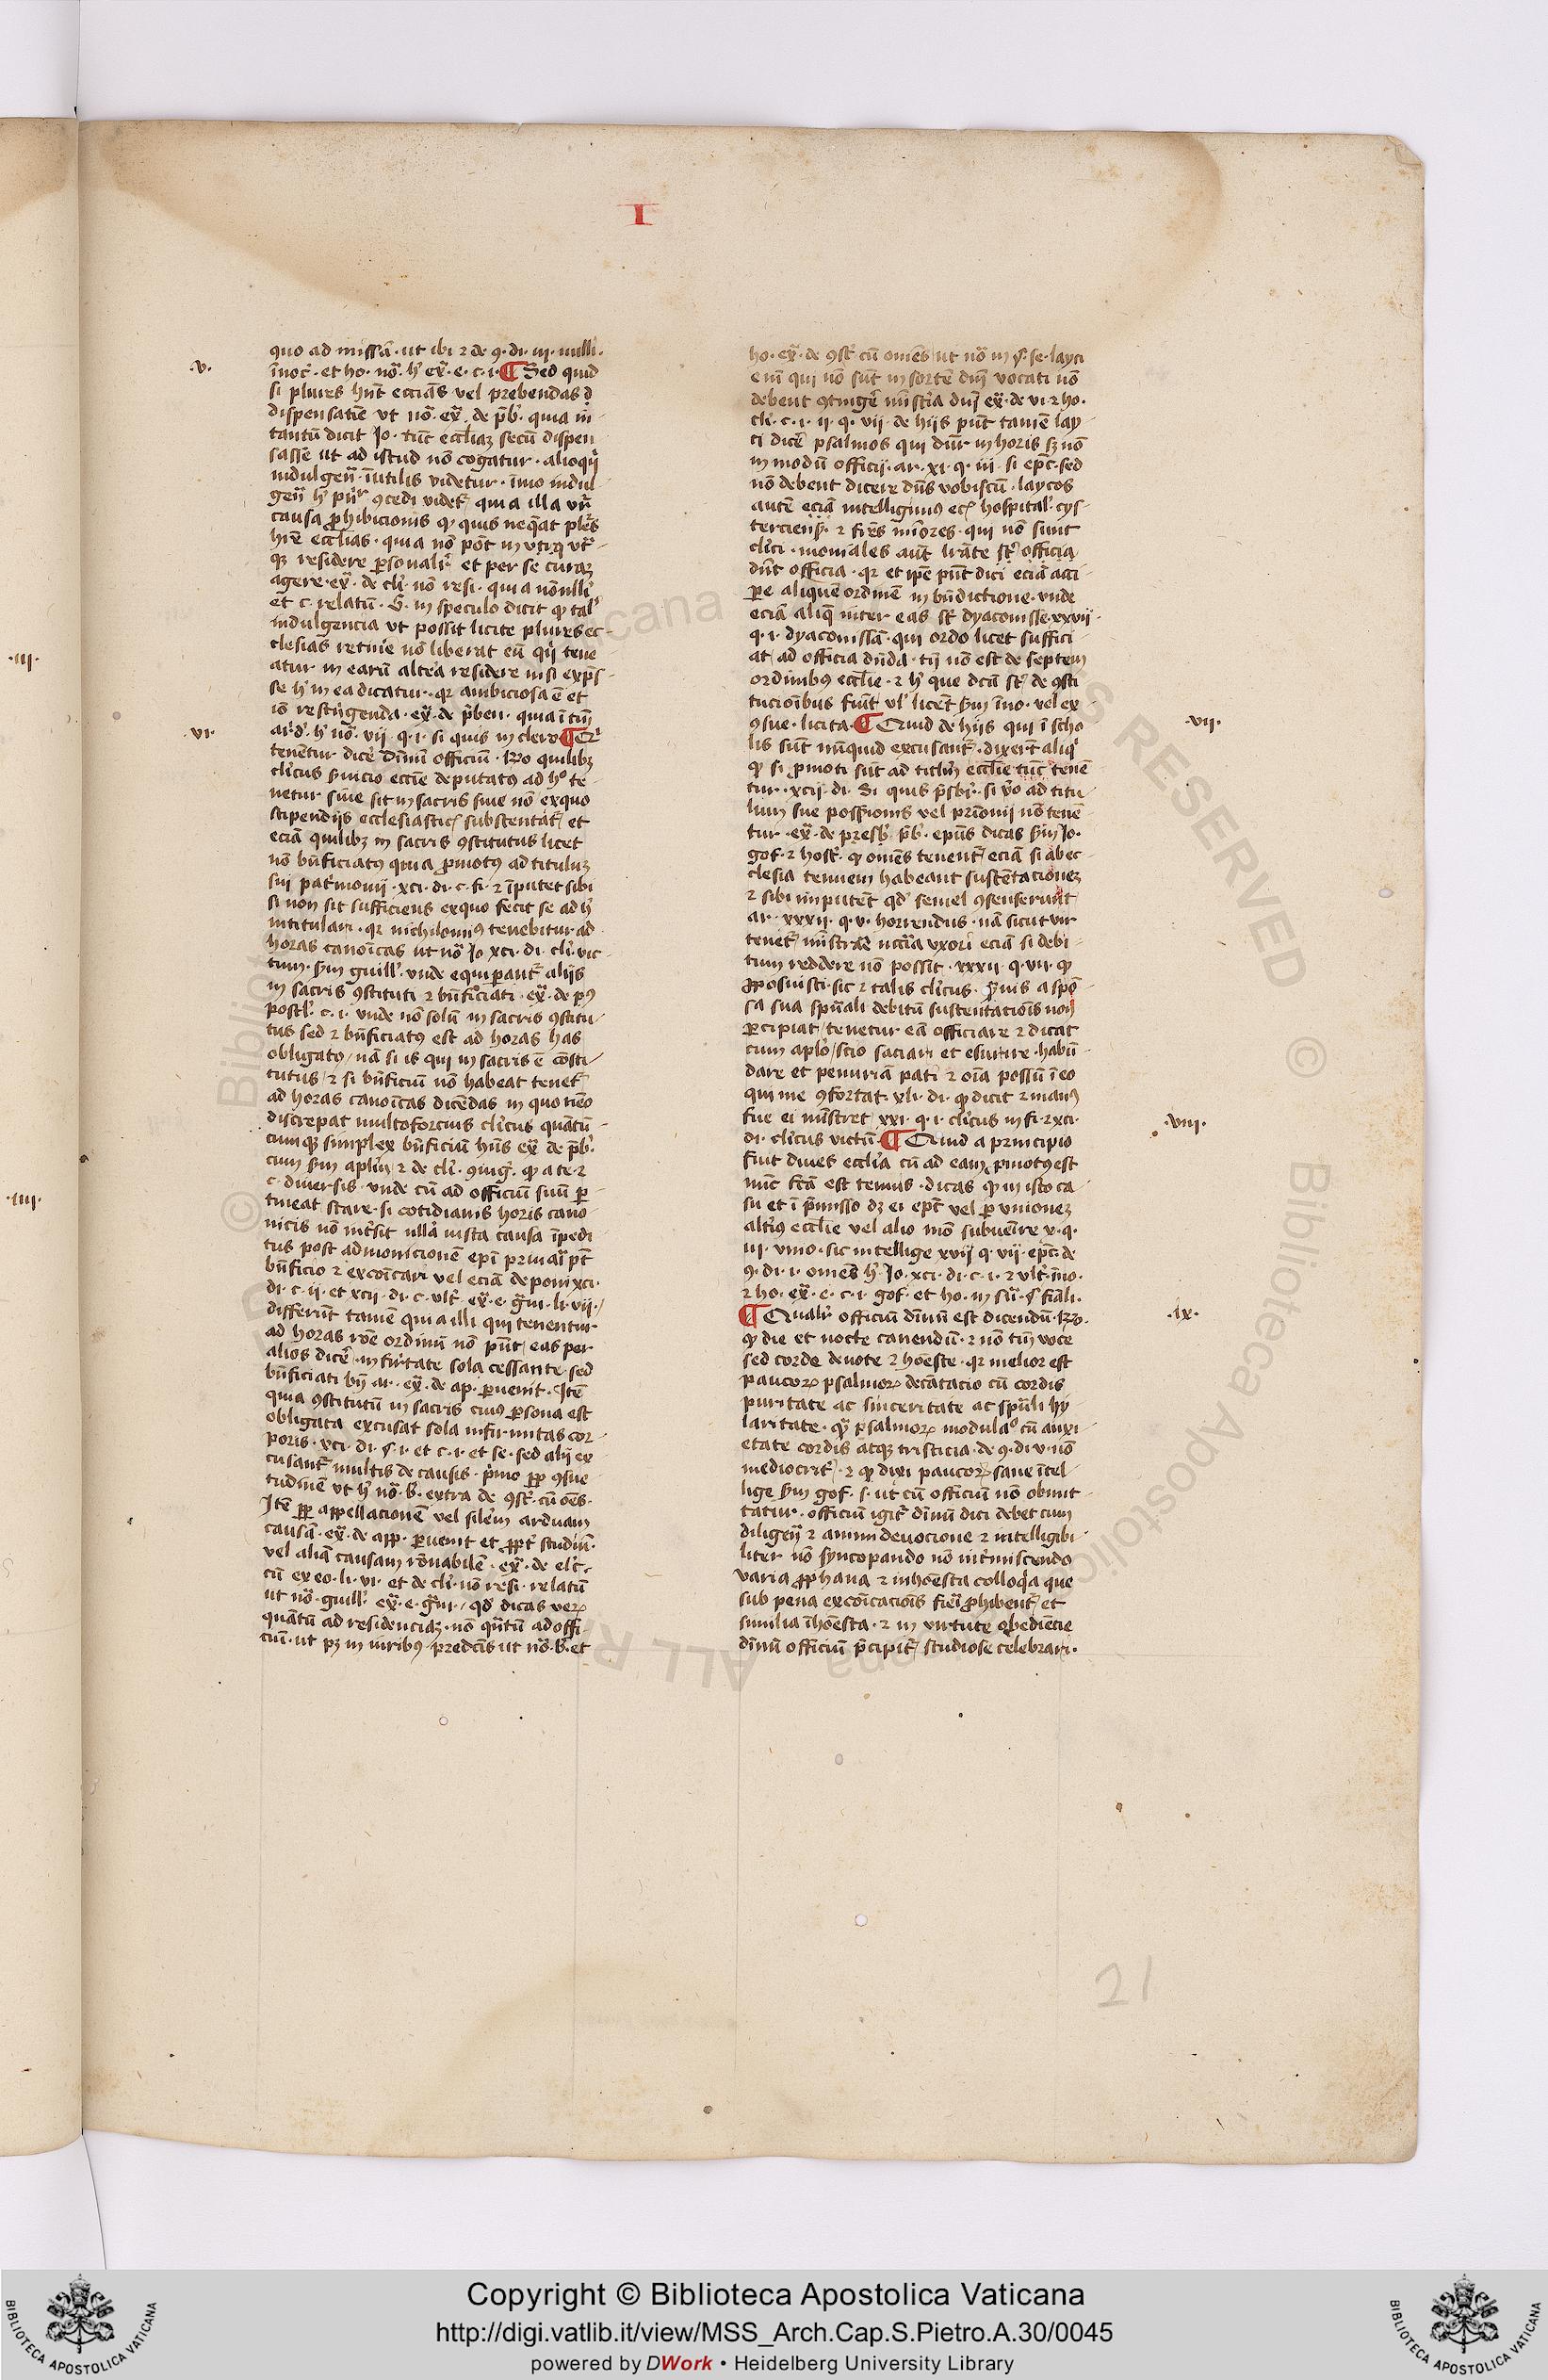 I
.v.
quo ad missā· ut ibi ⁊ de ꝯ· di· iii· nulli·
īnoc̄· et ho· no᷑· h̓ ex̄· e· c· i· ¶ Sed quid
si plures hn̄t eccīas vel prebendas
dispensatīe vt no᷑· ex̄· de p̄b̓· quia in
tantū dicit Jo· tūc eccliaꝫ secū dispen
sasse ut ad istud nō cogatur· alioqͥ
indulgen̄· īutilis videtur· īmo indul
gen̄ h̓ ꝯcedi videt᷑ quia illa
causa ꝓhibicionis ꝙ quis neqͣat pl̄es
hr̄e eccl̄ias· quia nō pōt in
qꝫ residere ꝑsonalī et per se curaꝫ
agere· ex̄· de cli̓· nō resi· quia nōnulli
et c· relatū· in speculo dicit ꝙ tal̓
indulgencia vt possit licite plures ec
clesias retine᷑ nō liberat eū qͥ tene
atur in earū altēa residere nisi exp̄s
se h̓ in ea dicatur· qr ambiciosa ē et
iō restͥgenda· ex̄· de p̄ben· quia ī tm̄
.vi.
h̓ no᷑· vii· q· i· si quis in clero ¶ Qͥ
tenētur dice᷑ diuinū officiū· Ro quilibꝫ
cli̓cus ẜuicio eccīe deputatꝰ ad hᵒ te
netur siue sit in sacris siue nō exquo
stipendijs ecclesiastic̄ substentat᷑ et
eciā quilibꝫ in sacris ꝯstitutus licet
nō bn̄ficiatꝰ quia ꝓmotꝰ ad tituluꝫ
sui pat̓monij· xci· di· c· fi· ⁊ īputet sibi
si non sit sufficiens exquo fecit se ad h̓
intitulari· qr nichilominꝰ tenebitur ad
horas canōicas ut no᷑ Jo xci· di· cli̓· vic
tum· ẜm guill̓· vnde equiꝑant᷑ alijs
in sacris ꝯstituti ⁊ bn̄ficiati· ex̄· de
postl̓· c· i· vnde nō solū in sacris ꝯstitu
tus sed ⁊ bn̄ficiatꝰ est ad horas has
obligatꝰ / nā si is qui in sacris ē cōsti
tutus / ⁊ si bn̄ficiū nō habeat tenet᷑
ad horas canoīcas dicēdas in quo
discrepat multoforcius cli̓cus quātū
cumqꝫ simplex bn̄ficiū hn̄s ex̄· de p̄b̓·
cum ẜm apl̓m ⁊ de cli̓· ꝯiug̓· ꝙ a te ⁊
c· diuersis· vnde cū ad officiū suū ꝑ
tineat stare· si cotidianis horis cano
nicis nō int̓sit nulla iusta causa īpedi
tus post admonicionē epī priuari pt̄
bn̄ficio ⁊ excoīcari vel eciā deponi xci·
di· c· ii· et xcii· di· c· vlt̓· ex̄· e· li· vii·
differūt tamē quia illi qui tenentur
ad horas rōne ordinū nō pn̄t / eas per
alios dice᷑· infir̓tate sola cessante· sed
bn̄ficiati bn̄ ar· ex̄· de ap· ꝑuenit· Itē
quia ꝯstitutū in sacris cuiꝰ ꝑsona est
obligata excusat sola infirmitas cor
poris· xci· di· §· i· et c· i· et se· sed alij ex
cusant᷑ multis de causis· p̄mo ꝓp ꝯsue
tudinē vt h̓ no᷑· B· extra de ꝯst̓· cū oēs·
Itē ꝓp appellacionē vel sil̓em arduam
causā· ex̄· de app· ꝑuenit et ꝓpt̓ studiū·
vel aliā causam rōnabilē· ex̄· de elc̄·
cū ex eo· li· vi· et de cli̓· nō resi· relatū
ut no᷑· guill̓· ex̄· e· qd̓ dicas veꝝ
quātū ad residenciaꝫ· nō qn̄tū ad offi
ciū· ut pꝫ in iuribꝰ predcīs ut no᷑· B· et
ho· ex̄· de ꝯst̓ cū omēs ut no᷑ in §· se· layci
eni qui nō sūt in sortē dnī vocati nō
debent ꝯtinge᷑ mīsti̓a ex̄· de vi ⁊ ho·
cli̓· c· i· ii· q· vii· de hijs pn̄t tamē lay
ci dice᷑ psalmos qui dn̄r in horis sꝫ nō
in modū officij· ar· xi· q· iii· si ep̄c· sed
nō debent dicere dn̄s vobiscū· laycos
autē eciā intelligimꝰ hospital̓· cys
terciens̓· ⁊ fr̄es mīores· qui nō sunt
cli̓ci· moniales aūt lrāte st̄ officia
dn̄t officia· qr et ip̄e pn̄t dici eciā acci
ꝑe aliquē ordinē in bn̄dictione· vnde
eciā aliqͣ inter eas st̄ dyaconisse· xxvii
q· i· dyaconissā· qui ordo licet suffici
at / ad officia dn̄da· tn̄ nō est de septem
ordinibꝰ eccl̄ie· ⁊ h̓ que dcā st̄ de ꝯsti
tucioībus fiunt vl̓ licēt ẜm īno· vel ex
.vii.
ꝯsue· licita· ¶ Quid de hijs qui ī scho
lis sūt nūquid excusant᷑· dixer̄t aliqͥ
ꝙ si ꝓmoti sūt ad titlm̄ eccl̄ie tūc tenē
tur· xcii· di· Si quis p̄sbi̓· si v̓o ad titu
lum sue possīonis vel pr̄iōnij nō tenē
tur· ex̄· de presb̓· p̄b̓· ep̄us dicas ẜm Jo·
gof· ⁊ host̓· ꝙ omēs tenent᷑ / eciā si ab ec
clesia tenuem habeant sustētacioneꝫ
⁊ sibi imputēt qd̓ semel ꝯsenserunt
ar· xxxii· q· v· horrendus· nā sicut vir
tenet᷑ mīstrae᷑ uccīa vxori eciā si debi
tum reddere nō possit· xxxii· q· vii· ꝙ
ꝓposuisti· sic ⁊ talis cli̓cus· a spō
sa sua spūali debitū sustentacioīs non
ꝑcipiat / tenetur eā officiare ⁊ dicat
cum aplo̓ / scio saciari et esurire· habū
dare et penuriā pati ⁊ oīa possū ī eo
qui me ꝯfortat· xli· di· ꝙ dicit ⁊ manꝰ
.viii.
sue ei mīstret xxi· q· i· cli̓cus in fi· ⁊ xci·
di· cli̓cus victū· ¶ Quid a principio
fuit diues eccl̄ia cū ad eam ꝓmotꝰ est
nūc fcā est tenuis· dicas ꝙ in isto ca
su et ī p̄misso dꝫ ei ep̄c vel ꝑ vnioneꝫ
altiꝰ eccl̄ie vel alio mō subuenīre x· q·
iii· vnio· sic intellige xvii q· vii· ep̄c· de
ꝯ· di· i· omēs h̓ Jo· xci· di· c· i· ⁊ vlt̓· īno·
⁊ ho· ex̄· e· c· i· gof· et ho· in sū· § finali·
.ix.
¶ Qualr̄ officiū diuinū est dicendū· Ro·
ꝙ die et nocte canendū· ⁊ nō tm̄ voce
sed corde deuote ⁊ hōeste· qr melior est
paucoꝝ psalmoꝝ decātacio cū cordis
puritate ac sinceritate ac spūali hy
laritate· qͣ psalmoꝝ modulaᵒ cū anxi
etate cordis atqꝫ tristicia· de ꝯ· di v· nō
mediocrit᷑· ⁊ ꝙ dixi paucoꝝ sane ītel
lige ẜm gof· s· ut cū officiū nō obmit
tatur· officiū igit᷑ diuinū dici debet cum
diligen̄ ⁊ animi deuocione ⁊ intelligibi
liter nō syncopando nō int̓miscendo
varia ꝓphana ⁊ inhōesta colloqͣa que
sub pena excoīcacioīs fieri ꝓhibent᷑ / et
similia īhōesta· ⁊ in virtute obediēcie
diuinū officiū p̄cipit᷑ / studiose celebrari·
.iii.
.iiii.
21
Copyright © Biblioteca Apostolica Vaticana
http://digi.vatlib.it/view/MSS_Arch.Cap.S.Pietro.A.30/0045
powered by DWork • Heidelberg University Library
BIBLIOTECA APOSTOLICA VATICANA
BIBLIOTECA APOSTOLICA VATICANA